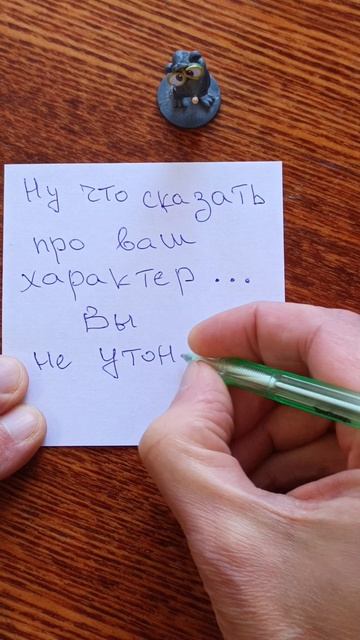 Ну что сказать
про ваш
характер...
Вы
не утон